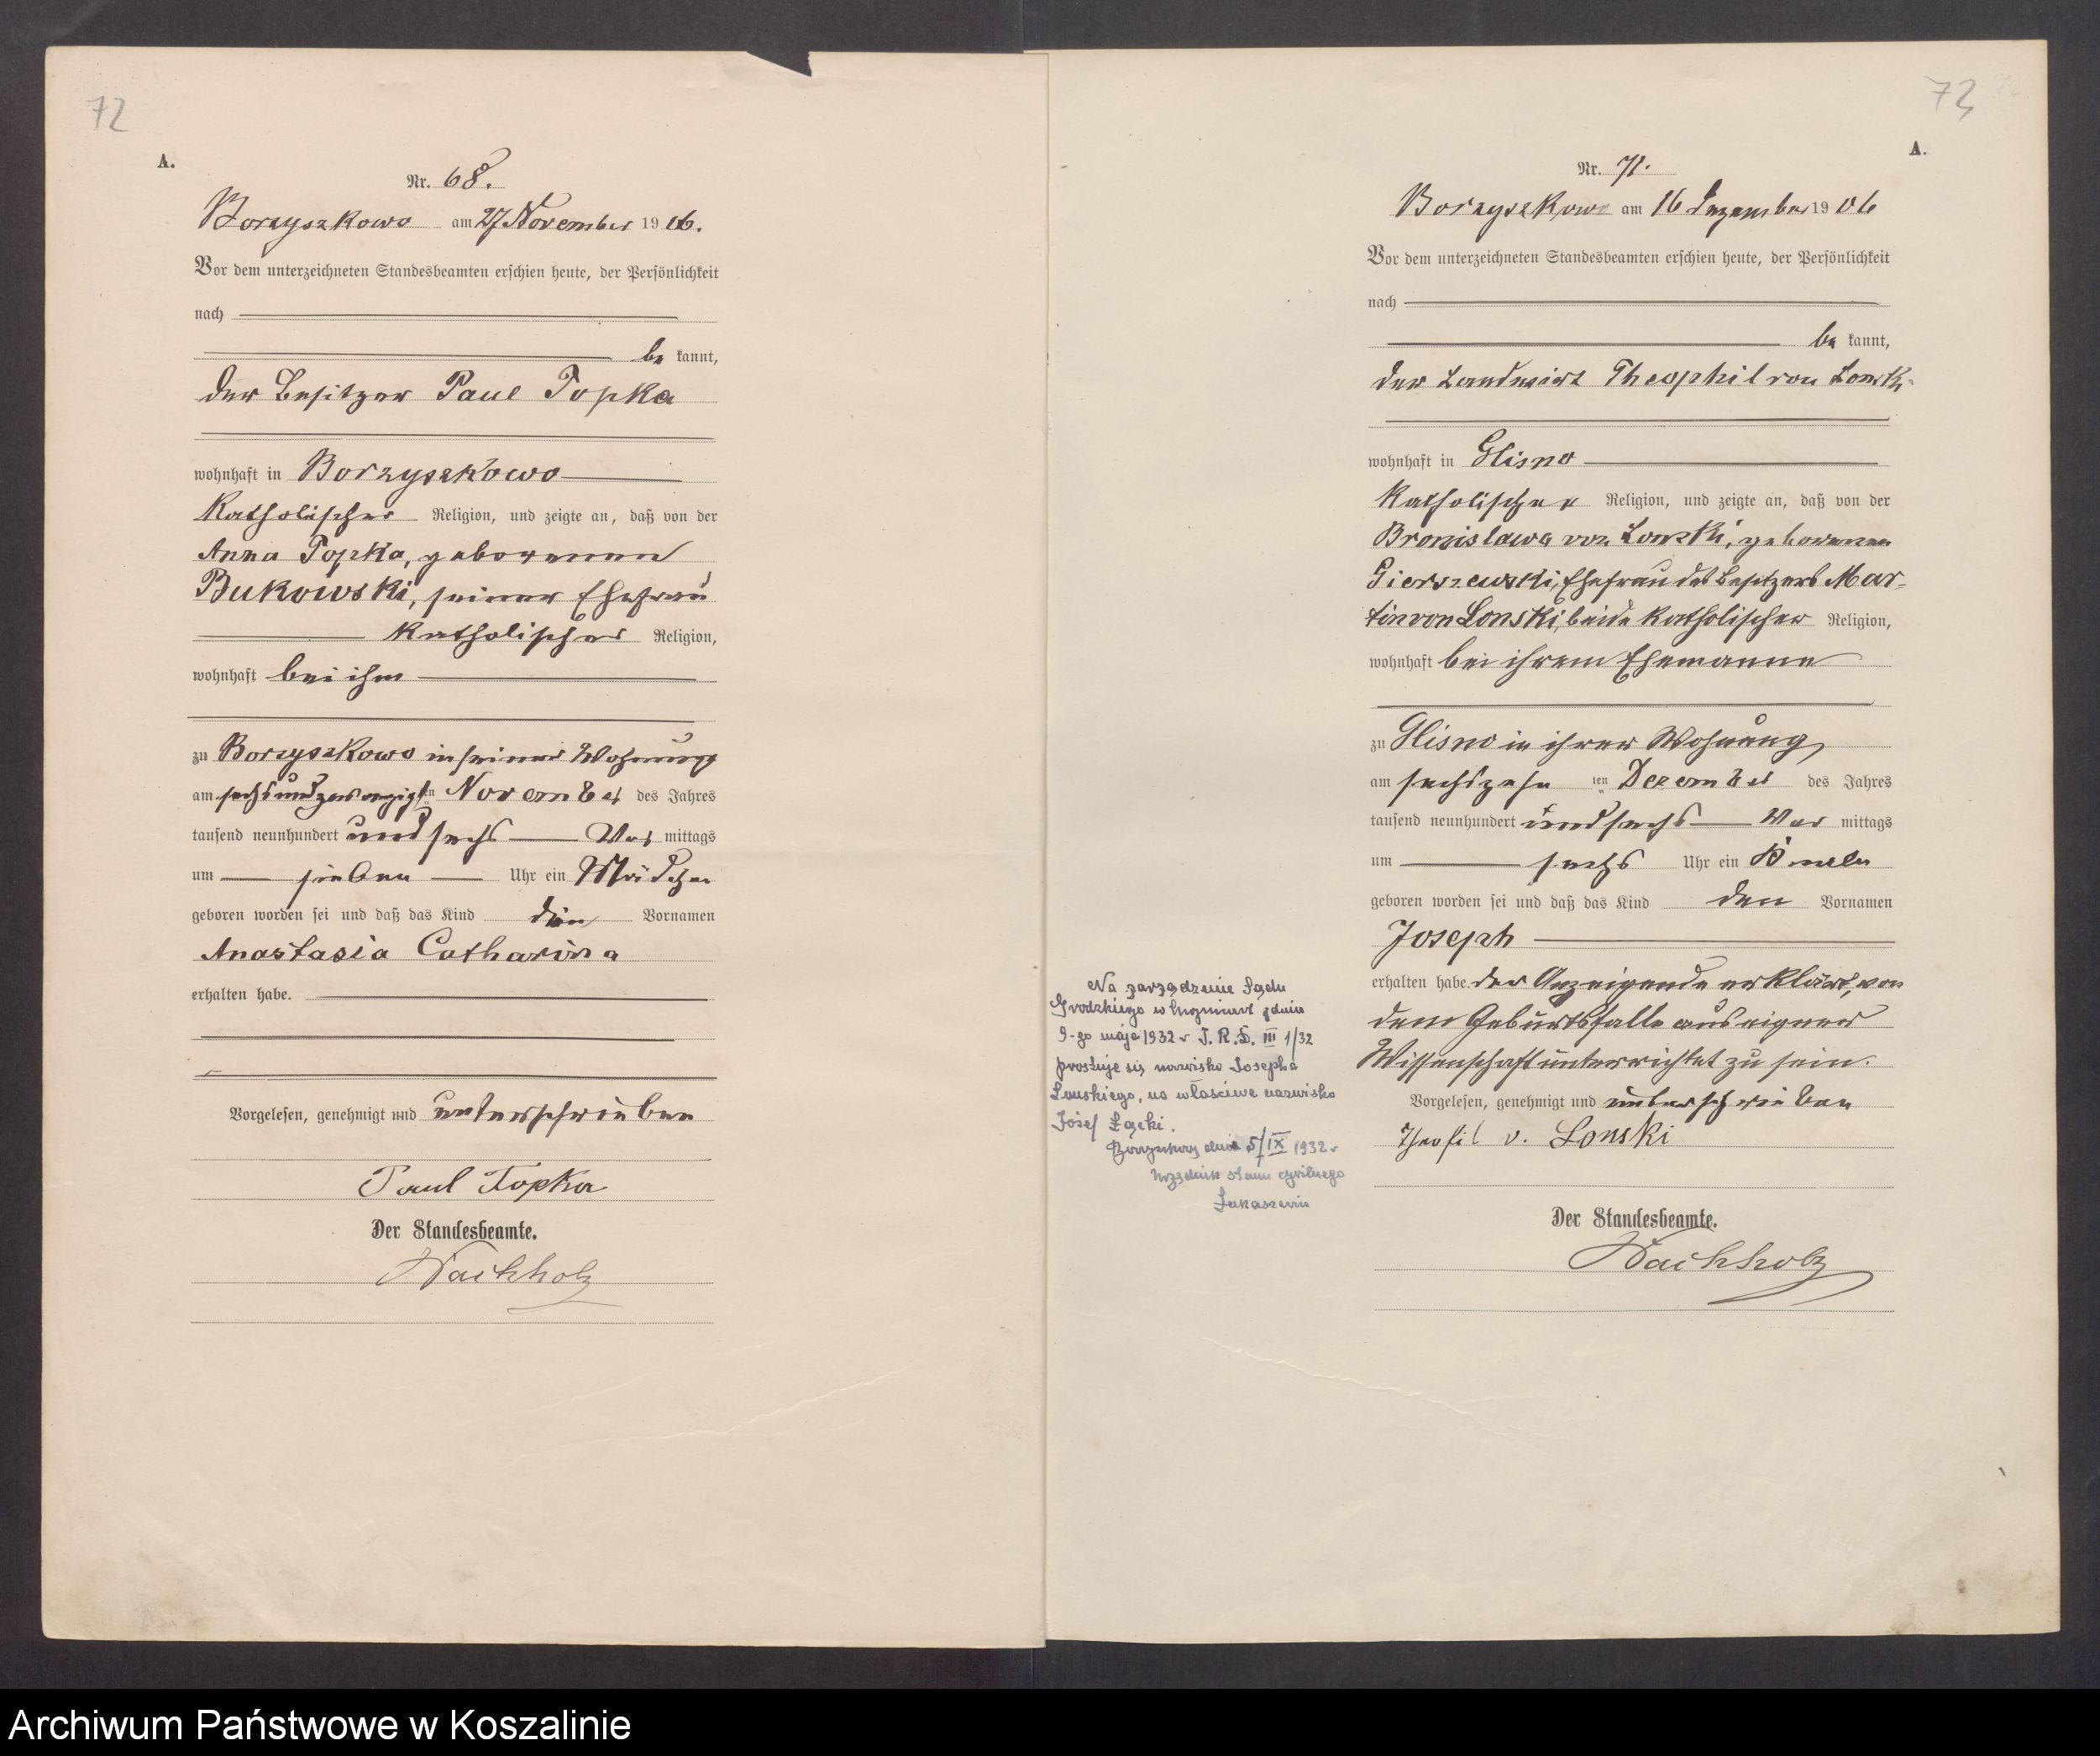 72
A.
Nr. 68.
Borzyszkowo am 27 November 1906.
Vor dem unterzeichneten Standesbeamten erschien heute, der Persönlichkeit
nach
be kannt,
der Besitzer Paul Topka
wohnhaft in Borzyszkowo
katholischer Religion, und zeigte an, daß von der
Anna Topka, geborenen
Bukowski, seiner Ehefrau
katholischer Religion,
wohnhaft bei ihm
zu Borzyszkowo in seiner Wohnung
am sechsundzwanzigsten November des Jahres
tausend neunhundert und sechs Vor mittags
um sieben Uhr ein Mädchen
geboren worden sei und daß das Kind die Vornamen
Anastasia Catharina
erhalten habe.
Vorgelesen, genehmigt und unterschrieben
Paul Topka
Der Standesbeamte.
Wachholz
73
A.
Nr. 71.
Borzyszkowo am 16 Dezember 1906
Vor dem unterzeichneten Standesbeamten erschien heute, der Persönlichkeit
nach
be kannt,
der Landwirt Theophil von Lonski
wohnhaft in Glisno
katholischer Religion, und zeigte an, daß von der
Bronislawa von Lonski, geborenen
Gierszewski, Ehefrau des Besitzers Mar-
tin von Lonski, beide katholischer Religion,
wohnhaft bei ihrem Ehemanne
zu Glisno in ihrer Wohnung
am sechszehn ten Dezember des Jahres
tausend neunhundert und sechs Vor mittags
um sechs Uhr ein Knabe
geboren worden sei und daß das Kind den Vornamen
Joseph
erhalten habe. der Anzeigende erklärt, von
dem Geburtsfalle aus eigner
Wissenschaft unterrichtet zu sein.
Vorgelesen, genehmigt und unterschrieben
Theofil v. Lonski
Der Standesbeamte.
Wachholz
Na zarządzenie Sądu
Grodzkiego w z dnia
9-go maja 1932 r J. R. S. III 1/32
prostuje się nazwisko Josepha
Lonskiego, na właściwe nazwisko
Józef Łącki.
Borzyszkowy dnia 5/IX 1932 r
Urzędnik stanu cywilnego
Archiwum Państwowe w Koszalinie